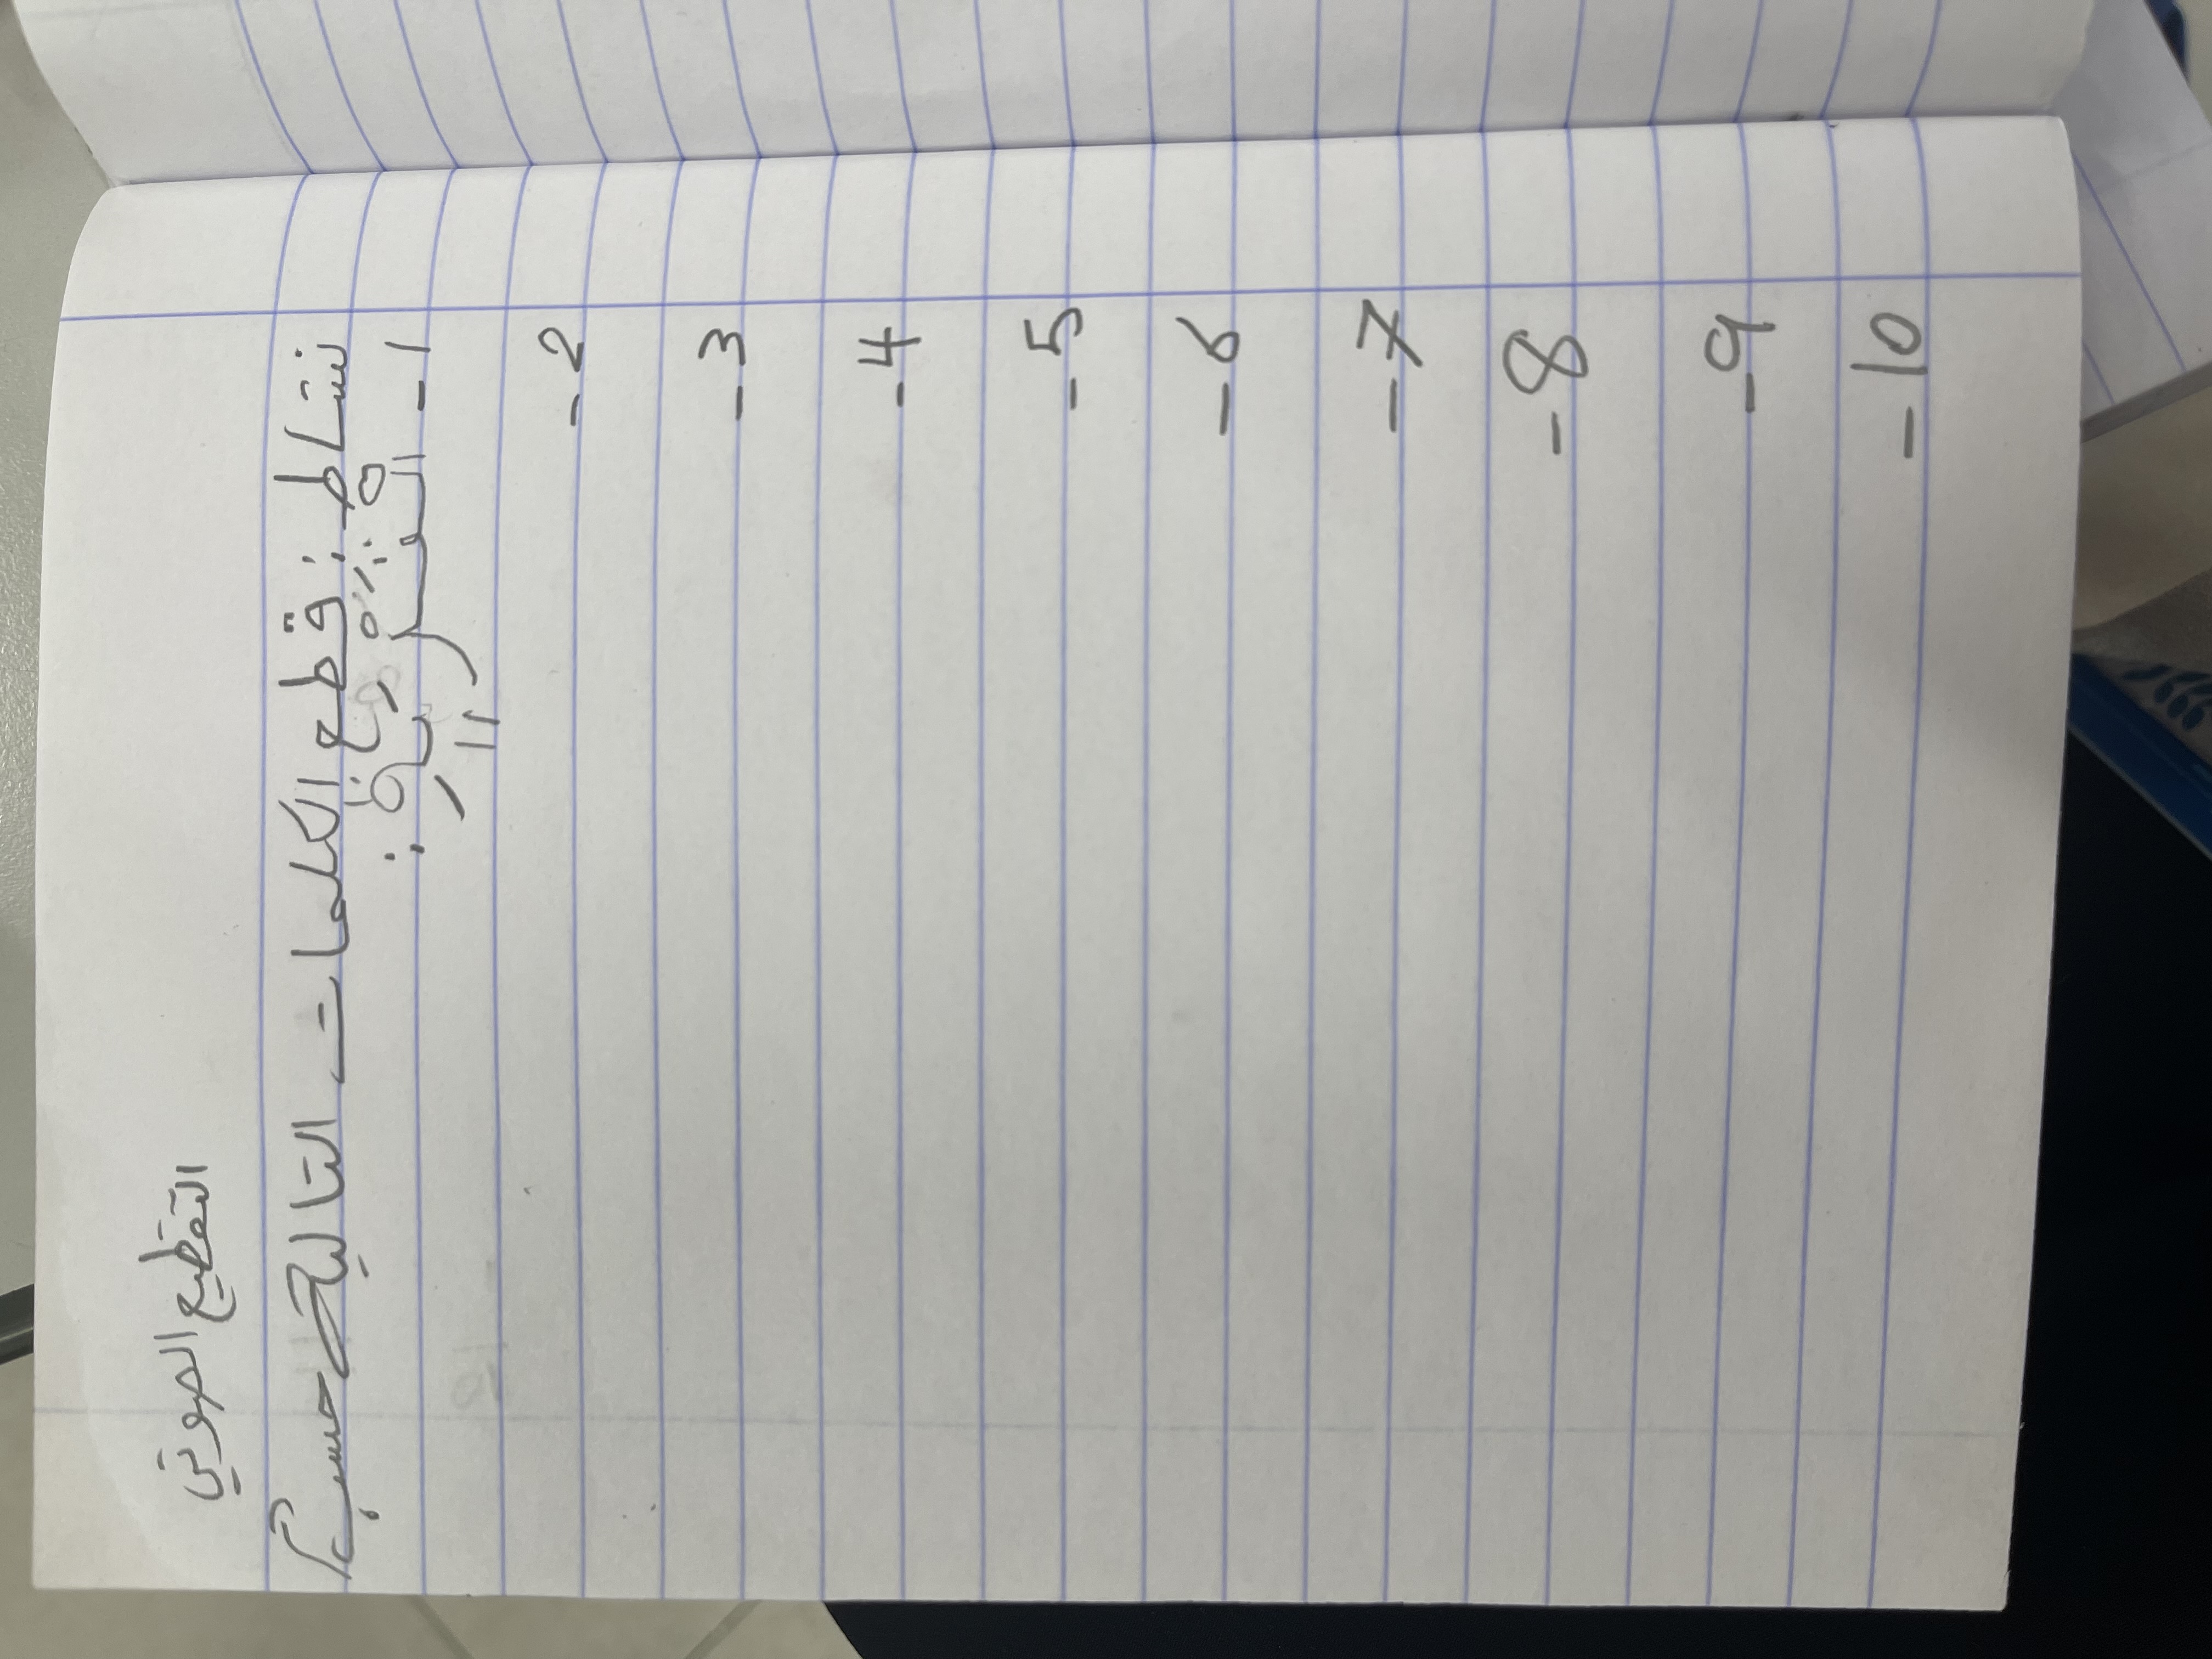 التقطيع الصوتي
نشاط : قطع الكلمات التالية حسب
1 -
2 -
3 -
4 -
5 -
6 -
7 -
8 -
9 -
10 -